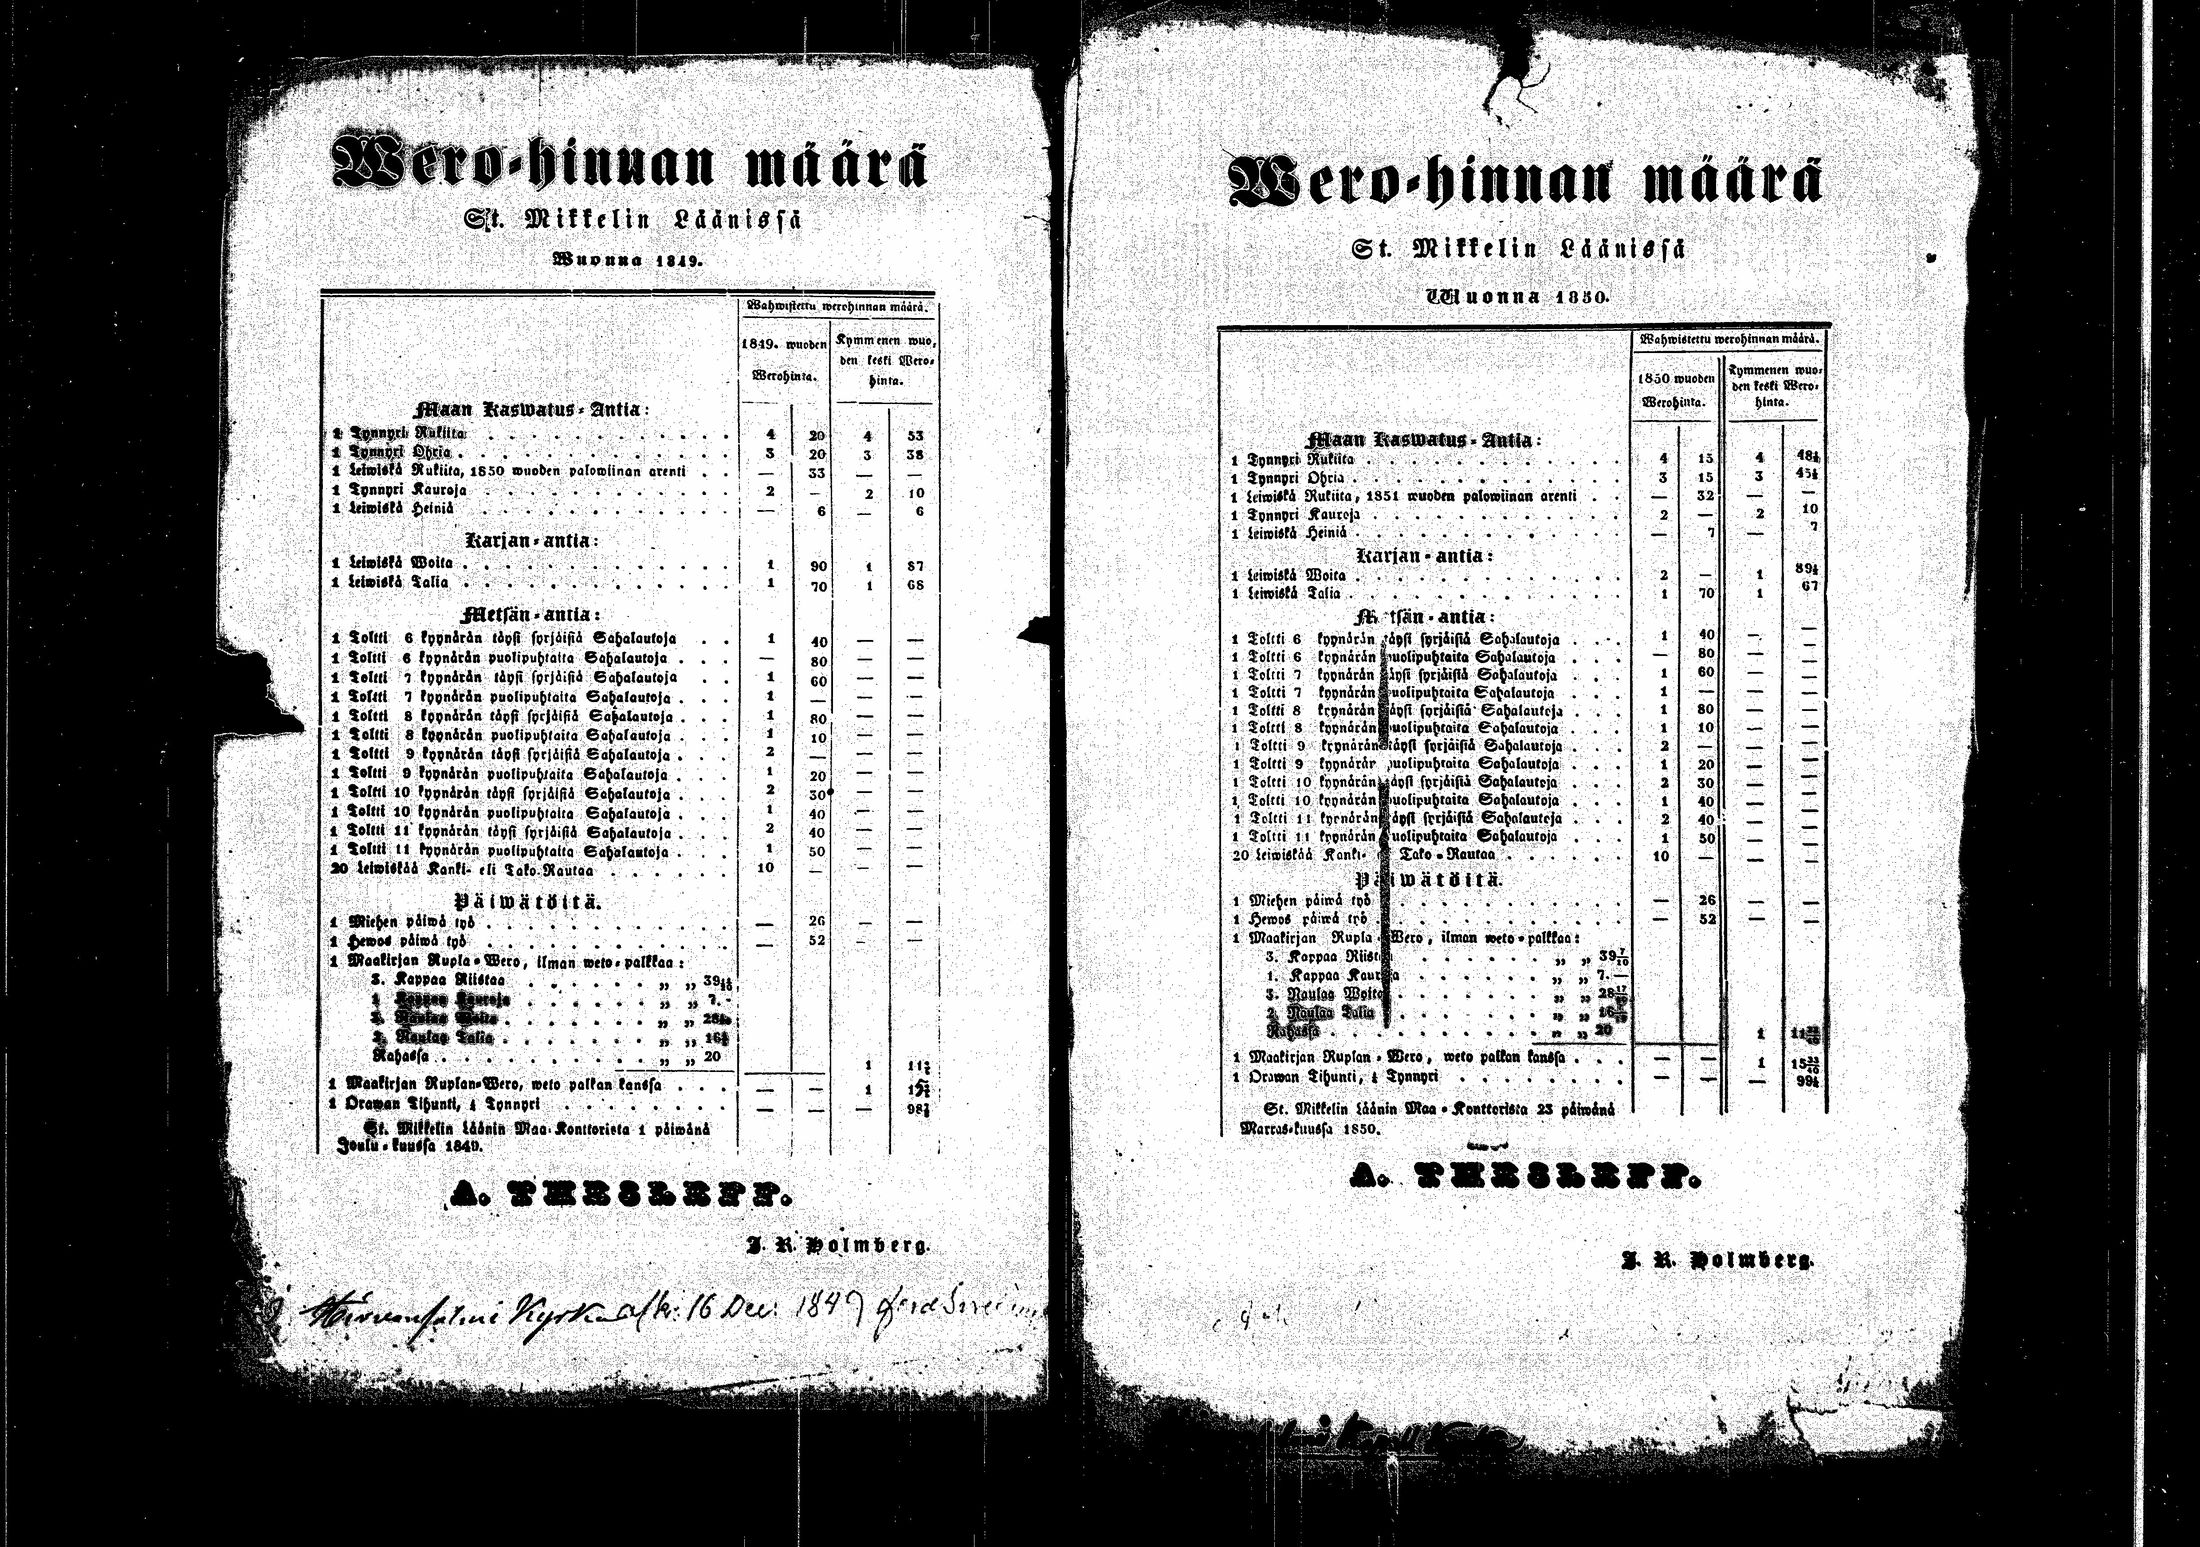 Wero-hinnan määrä
St. Mikkelin Läänissä
Wuonna 1849.
Wahwistettu werohinnan määrä.
1849. wuoden Werohinta.
Kymmenen wuoden keski Werohinta.
Maan Kaswatus-Antia:
1 Tynnyri Rukiita . . . 4 20 4 53
1 Tynnyri Ohria . . . 3 20 3 38
1 Leiwiskä Rukiita, 1850 wuoden palowiinan arenti . . — 33 — —
1 Tynnyri Kauroja . . . 2 — 2 10
1 Leiwiskä Heiniä . . . — 6 — 6
Karjan-antia:
1 Leiwiskä Woita . . . 1 90 1 87
1 Leiwiskä Talia . . . 1 70 1 68
Metsän-antia:
1 Toltti 6 kyynärän täysi syrjäisiä Sahalautoja . . 1 40 — —
1 Toltti 6 kyynärän puolipuhtaita Sahalautoja . . . — 80 — —
1 Toltti 7 kyynärän täysi syrjäisiä Sahalautoja . . 1 60 — —
1 Toltti 7 kyynärän puolipuhtaita Sahalautoja . . . 1 — — —
1 Toltti 8 kyynärän täysi syrjäisiä Sahalautoja . . . 1 80 — —
1 Toltti 8 kyynärän puolipuhtaita Sahalautoja . . . 1 10 — —
1 Toltti 9 kyynärän täysi syrjäisiä Sahalautoja . . . 2 — — —
1 Toltti 9 kyynärän puolipuhtaita Sahalautoja . . . 1 20 — —
1 Toltti 10 kyynärän täysi syrjäisiä Sahalautoja . . . 2 30 — —
1 Toltti 10 kyynärän puolipuhtaita Sahalautoja . . . 1 40 — —
1 Toltti 11 kyynärän täysi syrjäisiä Sahalautoja . . . 2 40 — —
1 Toltti 11 kyynärän puolipuhtaita Sahalautoja . . . 1 50 — —
20 Leiwiskää Kanki- eli Tako-Rautaa . . . 10 — — —
Päiwätöitä.
1 Miehen päiwä työ . . . — 26 — —
1 Hewos päiwä työ . . . — 52 — —
1 Maakirjan Rupla-Wero, ilman weto-palkkaa:
3. Kappaa Riistaa . . . „ „ 39
1 Kappaa Kauroja . . . „ „ 7. -
3. Naulaa Woita . . . „ „
2. Naulaa Talia . . . „ „ 16
Rahassa . . . „ „ 20 1 11
1 Maakirjan Ruplan-Wero, weto palkan kanssa . . . — — 1
1 Orawan Tihunti, Tynnyri . . . — — — 98
St. Mikkelin Läänin Maa-Konttorista 1 päiwänä
Joulu-kuussa 1849.
A. THESLEFF.
J. R. Holmberg.
Hirvensalmi Kyrka 16 Dec: 1849
Wero-hinnan määrä
St. Mikkelin Läänissä
Wuonna 1850.
Wahwistettu werohinnan määrä.
1850 wuoden Werohinta.
Kymmenen wuoden keski Werohinta.
Maan Kaswatus-Antia:
1 Tynnyri Rukiita . . . 4 15 4 48½
1 Tynnyri Ohria . . . 3 15 3 45½
1 Leiwiskä Rukiita, 1851 wuoden palowiinan arenti . . — 32 — —
1 Tynnyri Kauroja . . . 2 — 2 10
1 Leiwiskä Heiniä . . . — 7 — 7
Karjan-antia:
1 Leiwiskä Woita . . . 2 — 1 89½
1 Leiwiskä Talia . . . 1 70 1 67
Metsän-antia:
1 Toltti 6 kyynärän täysi syrjäisiä Sahalautoja . . . 1 40 — —
1 Toltti 6 kyynärän puolipuhtaita Sahalautoja . . . — 80 — —
1 Toltti 7 kyynärän täysi syrjäisiä Sahalautoja . . . 1 60 — —
1 Toltti 7 kyynärän puolipuhtaita Sahalautoja . . . 1 — — —
1 Toltti 8 kyynärän täysi syrjäisiä Sahalautoja . . . 1 80 — —
1 Toltti 8 kyynärän puolipuhtaita Sahalautoja . . . 1 10 — —
1 Toltti 9 kyynärän täysi syrjäisiä Sahalautoja . . . 2 — — —
1 Toltti 9 kyynärän puolipuhtaita Sahalautoja . . . 1 20 — —
1 Toltti 10 kyynärän täysi syrjäisiä Sahalautoja . . . 2 30 — —
1 Toltti 10 kyynärän puolipuhtaita Sahalautoja . . . 1 40 — —
1 Toltti 11 kyynärän täysi syrjäisiä Sahalautoja . . . 2 40 — —
1 Toltti 11 kyynärän puolipuhtaita Sahalautoja . . . 1 50 — —
20 Leiwiskää Kanki- Tako-Rautaa . . . 10 — — —
Päiwätöitä.
1 Miehen päiwä työ . . . — 26 — —
1 Hewos päiwä työ . . . — 52 — —
1 Maakirjan Rupla-Wero, ilman weto-palkkaa:
3. Kappaa Riistaa . . . „ „ 39 7/10
1. Kappaa Kauroja . . . „ „ 7. —
3. Naulaa Woita . . . „ „ 28
2. Naulaa Talia . . . „ „ 16
Rahassa . . . „ „ 20 1 11
1 Maakirjan Ruplan-Wero, weto palkan kanssa . . . — — 1 15 33/40
1 Orawan Tihunti, Tynnyri . . . — — — 99½
St. Mikkelin Läänin Maa-Konttorista 23 päiwänä
Marras-kuussa 1850.
A. THESLEFF.
J. R. Holmberg.